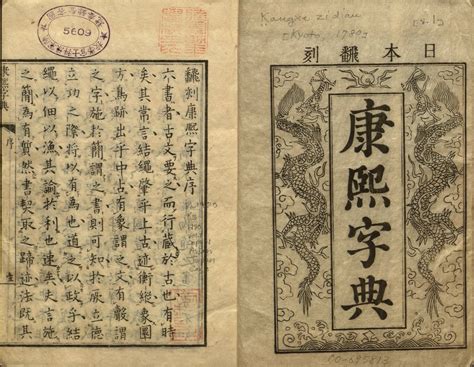 日本翻刻
康熙字典
Kangxi zidian
(Kyoto, 1780)
飜刻康熙字典序
六書者古文要之而行藏於古也有時
矣其常言結繩肇乎上古迹衡縱象圖
方鳥跡出乎中古有象謂之文有聲謂
之字施於簡謂之書則可知於厥立德
立功之際將以有為也道之以政乎結
繩以佃以漁其諭於利也速矣史言施
之簡為有然書契取之迹法既其
康熙字典
序
5609